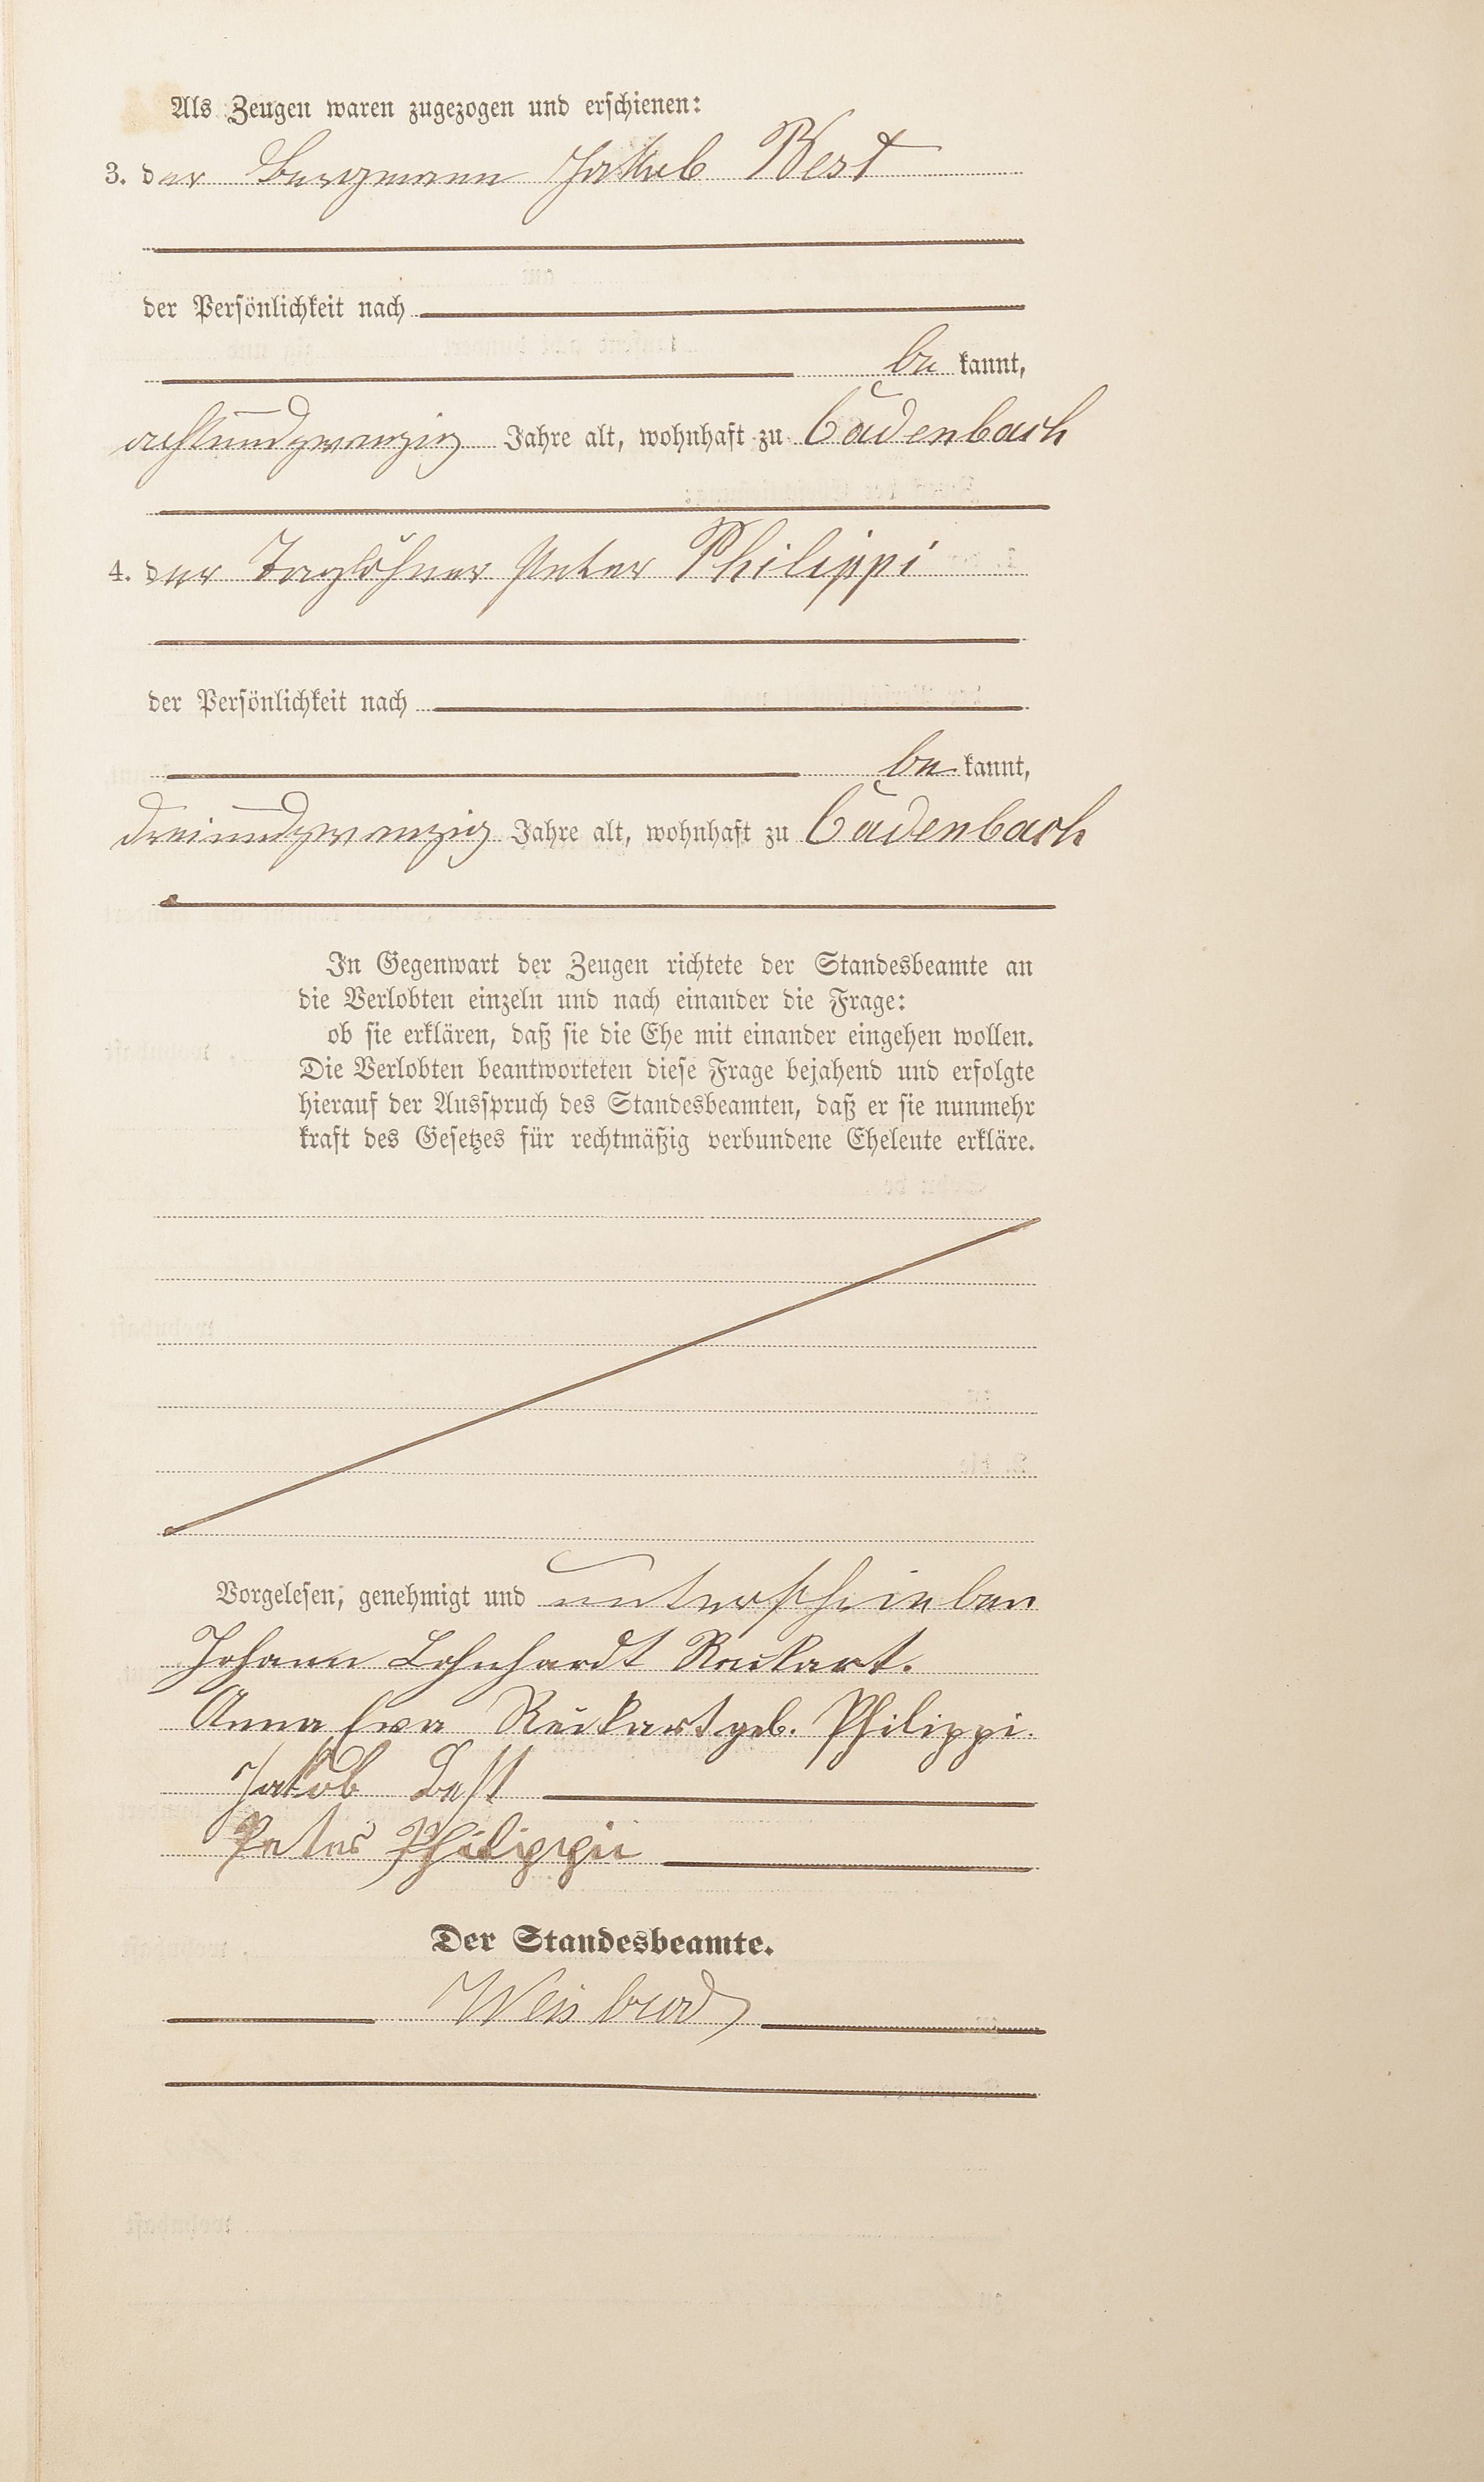 Als Zeugen waren zugezogen und erschienen:
3. der Bergmann Jakob Best
der Persönlichkeit nach
be kannt,
achtundzwanzig Jahre alt, wohnhaft zu Cadenbach
4. der Taglöhner Peter Philippi
der Persönlichkeit nach
be kannt,
dreiundzwanzig Jahre alt, wohnhaft zu Cadenbach
In Gegenwart der Zeugen richtete der Standesbeamte an
die Verlobten einzeln und nach einander die Frage:
ob sie erklären, daß sie die Ehe mit einander eingehen wollen.
Die Verlobten beantworteten diese Frage bejahend und erfolgte
hierauf der Ausspruch des Standesbeamten, daß er sie nunmehr
kraft des Gesetzes für rechtmäßig verbundene Eheleute erkläre.
Vorgelesen, genehmigt und unterschrieben
Johann Lehnhardt Reikart.
Anna Eva Reikart geb. Philippi.
Jakob Best
Peter Philippi
Der Standesbeamte.
Weisbrod